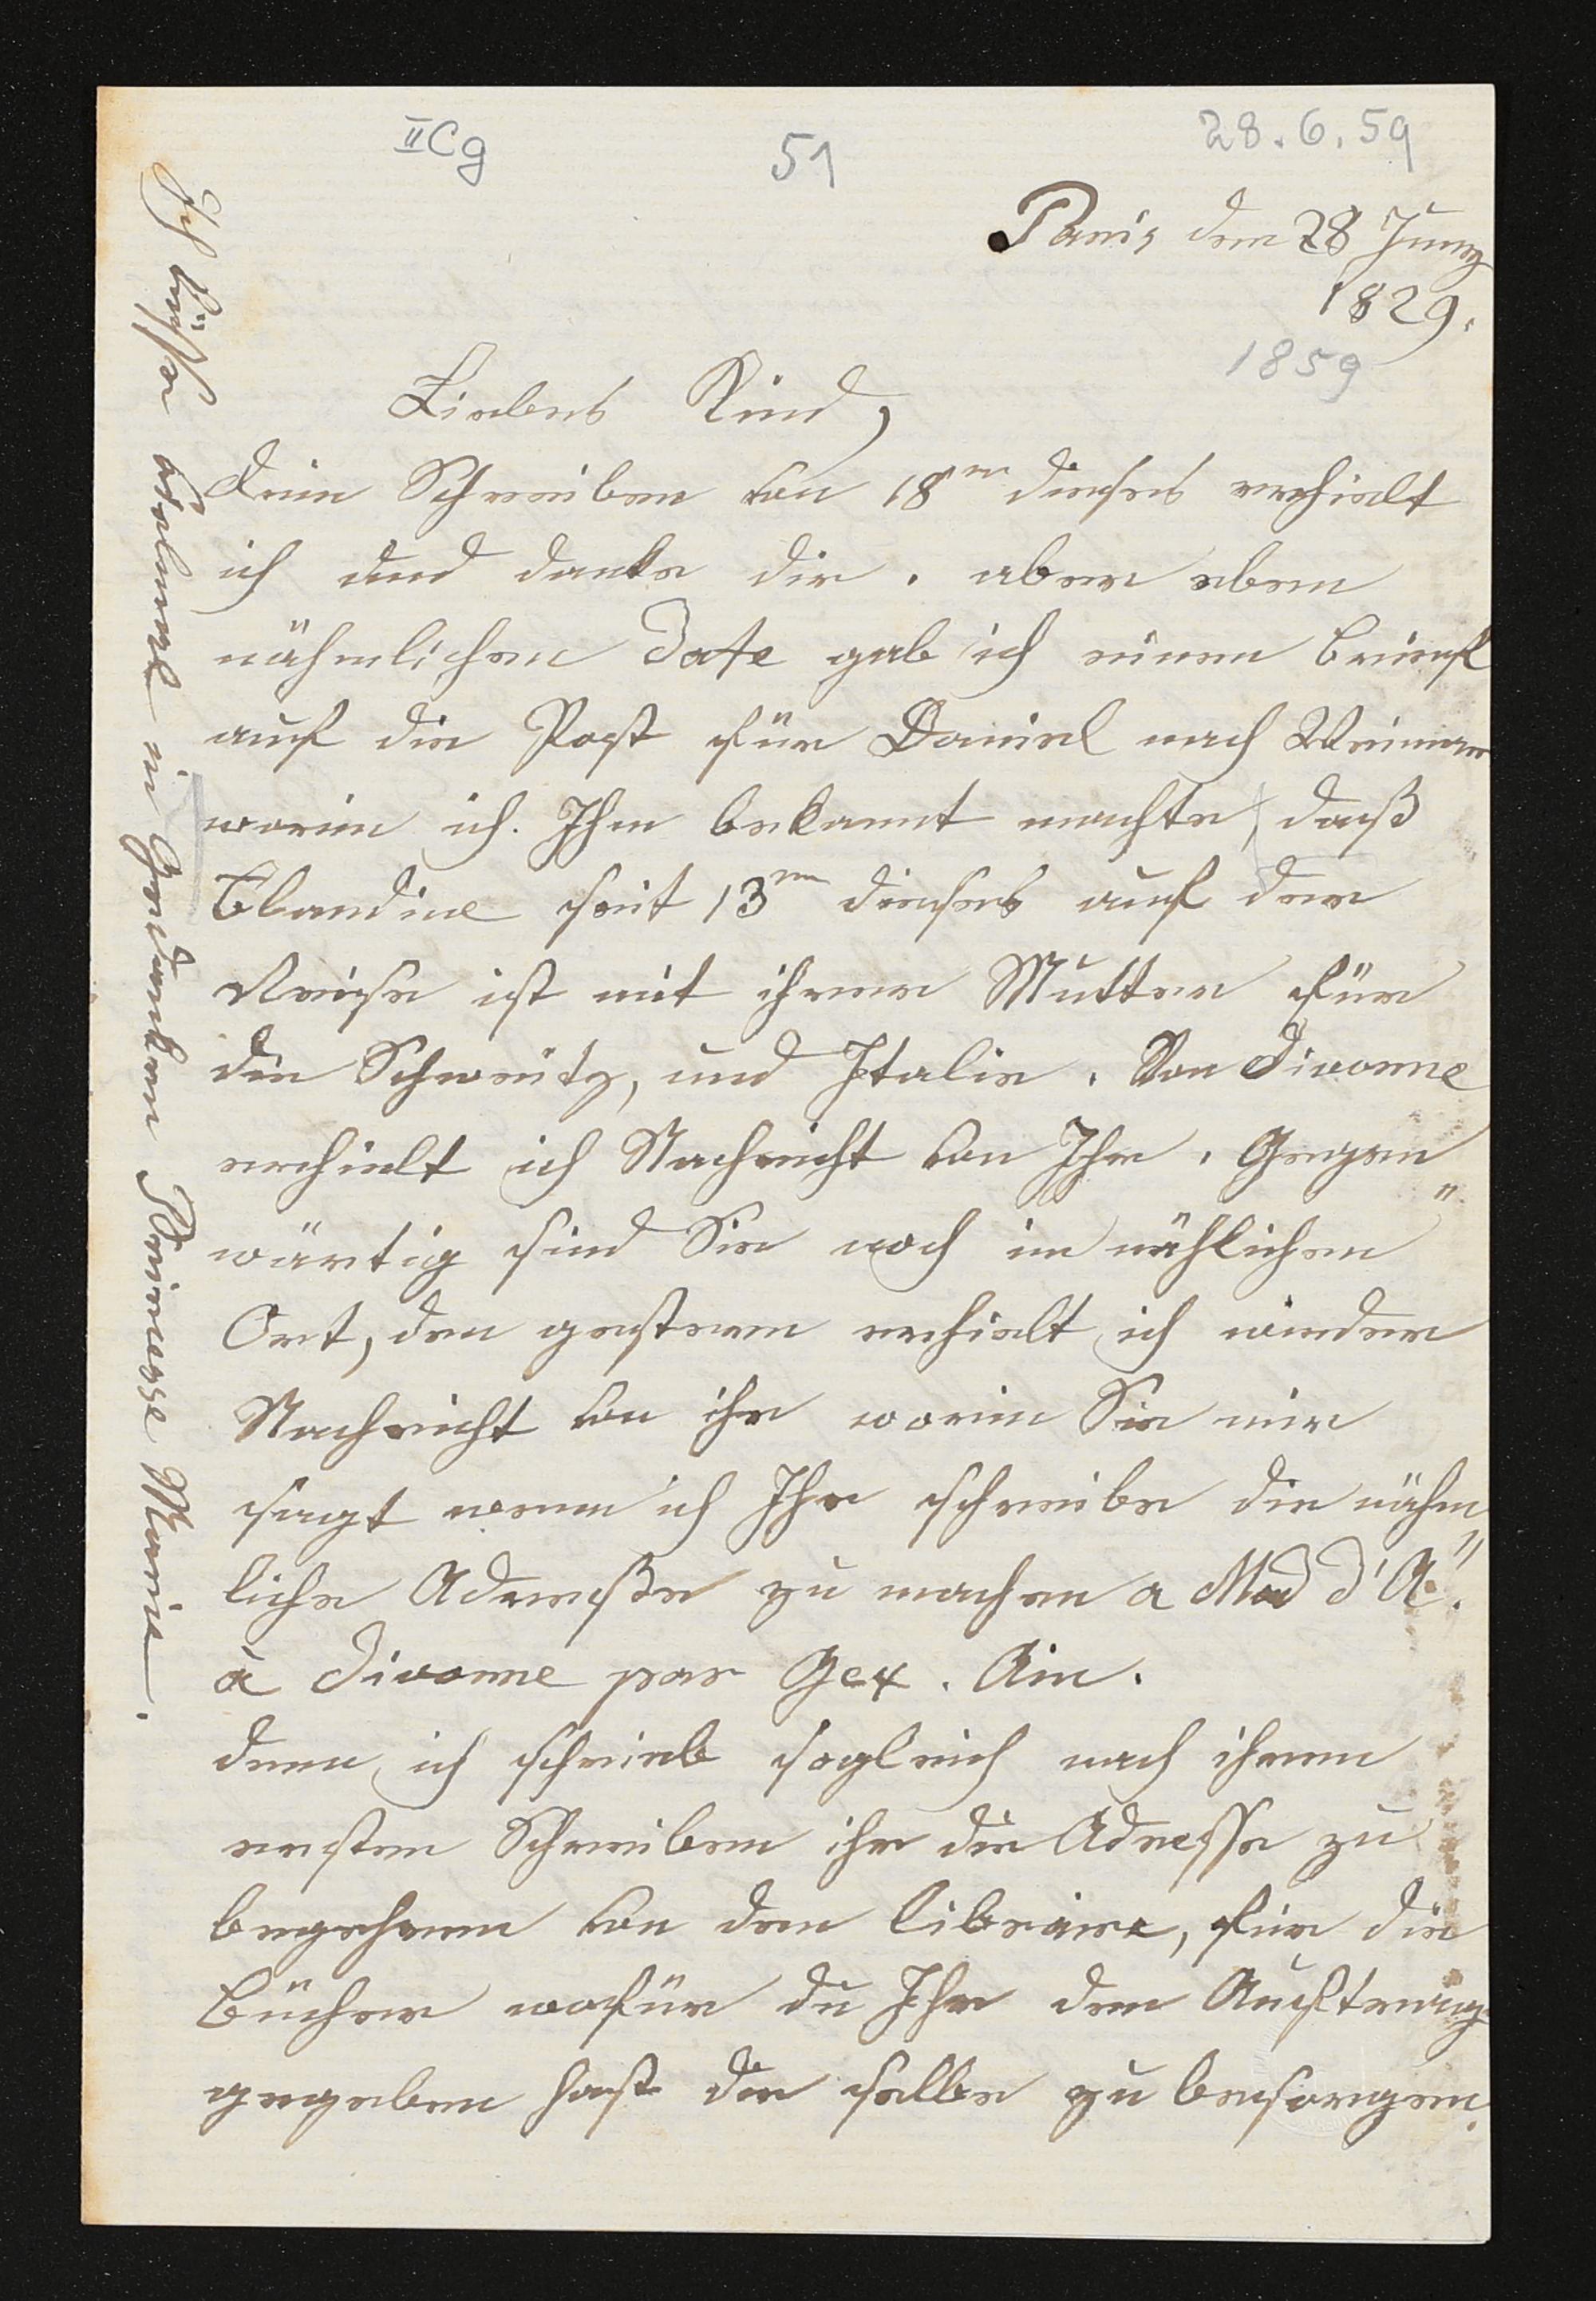 IICg
51
28.6.59
Paris den 28 Juny
1829.
1859
Liebes Kind,
dein Schreiben von 18ten dieses erhielt
ich und danke dir. aber eben
nähmlichen Date gab ich einen Brief
auf die Post für Daniel nach Weimar
worin ich. Ihm bekannt machte, daß
Blandine seit 13ten dieses auf der
Reise ist mit ihrer Mutter für
die Schweitz, und Italie. Von Divonne
erhielt ich Nachricht von Ihr. Gegen"
wärtig sind Sie noch im nählichen
Ort, den gestern erhielt ich wieder
Nachricht von ihr worin Sie mir
sagt wenn ich Ihr schreibe die nähm"
liche Adreße zu machen a Mad d'A.
à Divonne par Gex. Ain.
denn ich schrieb sogleich nach ihrem
ersten Schreiben ihr die Adresse zu
begehren von dem Libraire, für die
Bücher wofür du Ihr den Auftrag
gegeben hast die selbe zu besorgen.
Ich küsse 1000mal in Gedanken Princesse Marie.